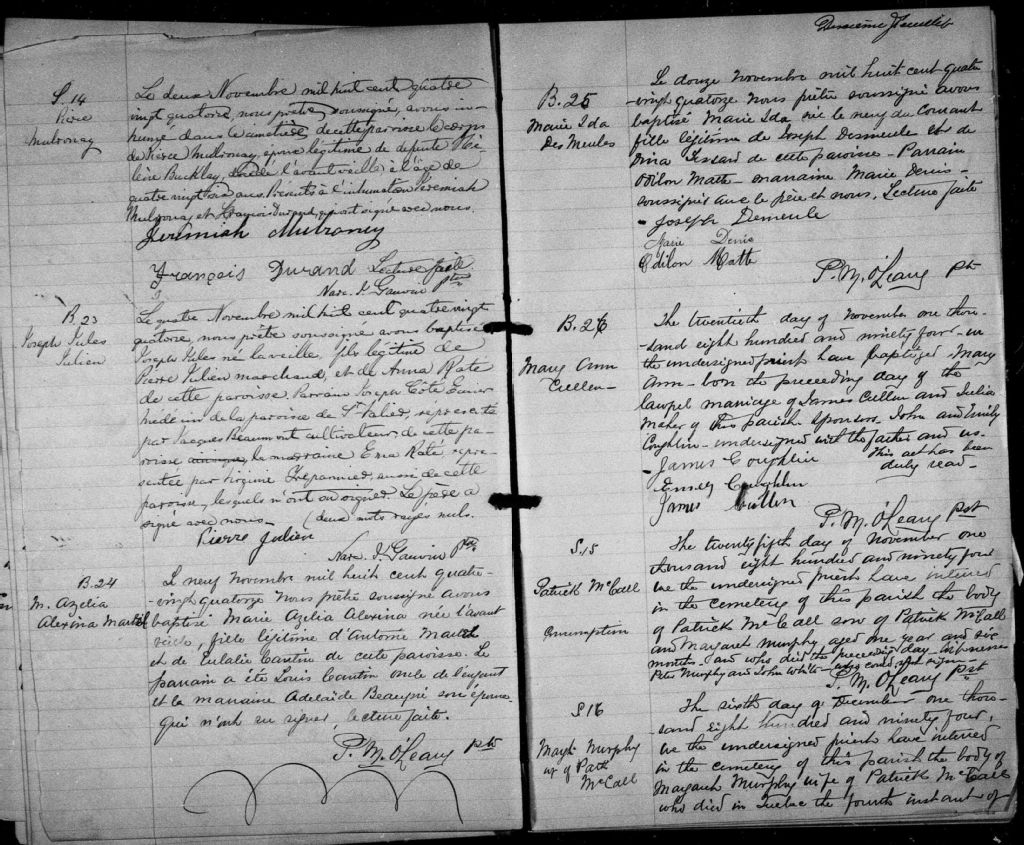 S. 14
Pierce
Mulrooney
Le deux Novembre mil huit cent quatre
vingt quatorze, nous prêtre soussigné, avons in-
humé dans le cimetière de cette paroisse le corps
de Pierce Mulrooney, époux légitime de defunte
Buckley, décédé l'avant veille à l'age de
quatre vingt ans. Présents à l'inhumation Jeremiah
Mulrooney et François Durand, qui ont signé avec nous.
Jeremiah Mulroney
François Durand Lecture faite.
Narc. J. Gauvin Ptre
B. 23
Joseph Jules
Julien
Le quatre Novembre mil huit cent quatre vingt
quatorze, nous prêtre soussigné avons baptisé
Joseph Jules né la veille, fils légitime de
Pierre Julien marchand, et de Anna Raté
de cette paroisse. Parrain Joseph Côté
médecin de la paroisse de St , représenté
par Jacques Beaumont cultivateur de cette pa-
roisse la marraine Raté repré-
sentée par Virginie Trépannier, aussi de cette
paroisse, lesquels n'ont su signer. Le père a
signé avec nous. (deux mots rayés nuls.
Pierre Julien
Narc. J. Gauvin Ptre
B. 24
M. Azelia
Alexina Martel
Le neuf Novembre mil huit cent quatre-
vingt quatorze Nous prêtre soussigné avons
baptisé Marie Azelia Alexina née l'avant
veille, fille légitime d'Antoine Martel
et de Eulalie Cantin de cette paroisse. Le
parrain a été Louis Cantin oncle de l'enfant
et la marraine Adelaide Beaupré son épouse
qui n'ont su signer, lecture faite.
P. M. O'Leary Ptr
Deuxième feuillet
B. 25
Marie Ida
Des Meules
Le douze Novembre mil huit cent quatre
-vingt quatorze Nous prêtre soussigné avons
baptisé Marie Ida née le neuf du Courant
fille légitime de Joseph Desmeule et de
de cette paroisse - Parrain
Odilon Matte - marraine Marie Denis -
soussignés avec le père et nous. Lecture faite
- Joseph Demeule
Marie Denis
Odilon Matte
P. M. O'Leary Ptr
B. 26
Mary Ann
Cullen -
The twentieth day of November one thou-
sand eight hundred and ninety four - we
the undersigned priest have baptized Mary
Ann - born the preceeding day of the
lawful marriage of James Cullen and Julia
Maher of this parish. Sponsors, John and Emily
Coughlin - undersigned with the father and us.
- James Coughlin This act has been
duly read -
Emily Coughlin
James Cullen
P. M. O'Leary Pst
S. 15
Patrick McCall
Consumption
The twenty fifth day of November one
thousand eight hundred and ninety four
we the undersigned priest have interred
in the cemetery of this parish the body
of Patrick McCall son of Patrick McCall
and Margaret Murphy aged one year and six
months - and who died the preceeding day -
Peter Murphy and John White - who could not sign -
P. M. O'Leary Pst
S 16
Margt Murphy
wf of Patk
McCall
The sixth day of December one thou-
sand eight hundred and ninety four,
we the undersigned priest have interred
in the cemetery of this parish the body of
Margaret Murphy wife of Patrick McCall
who died in Quebec the fourth instant of